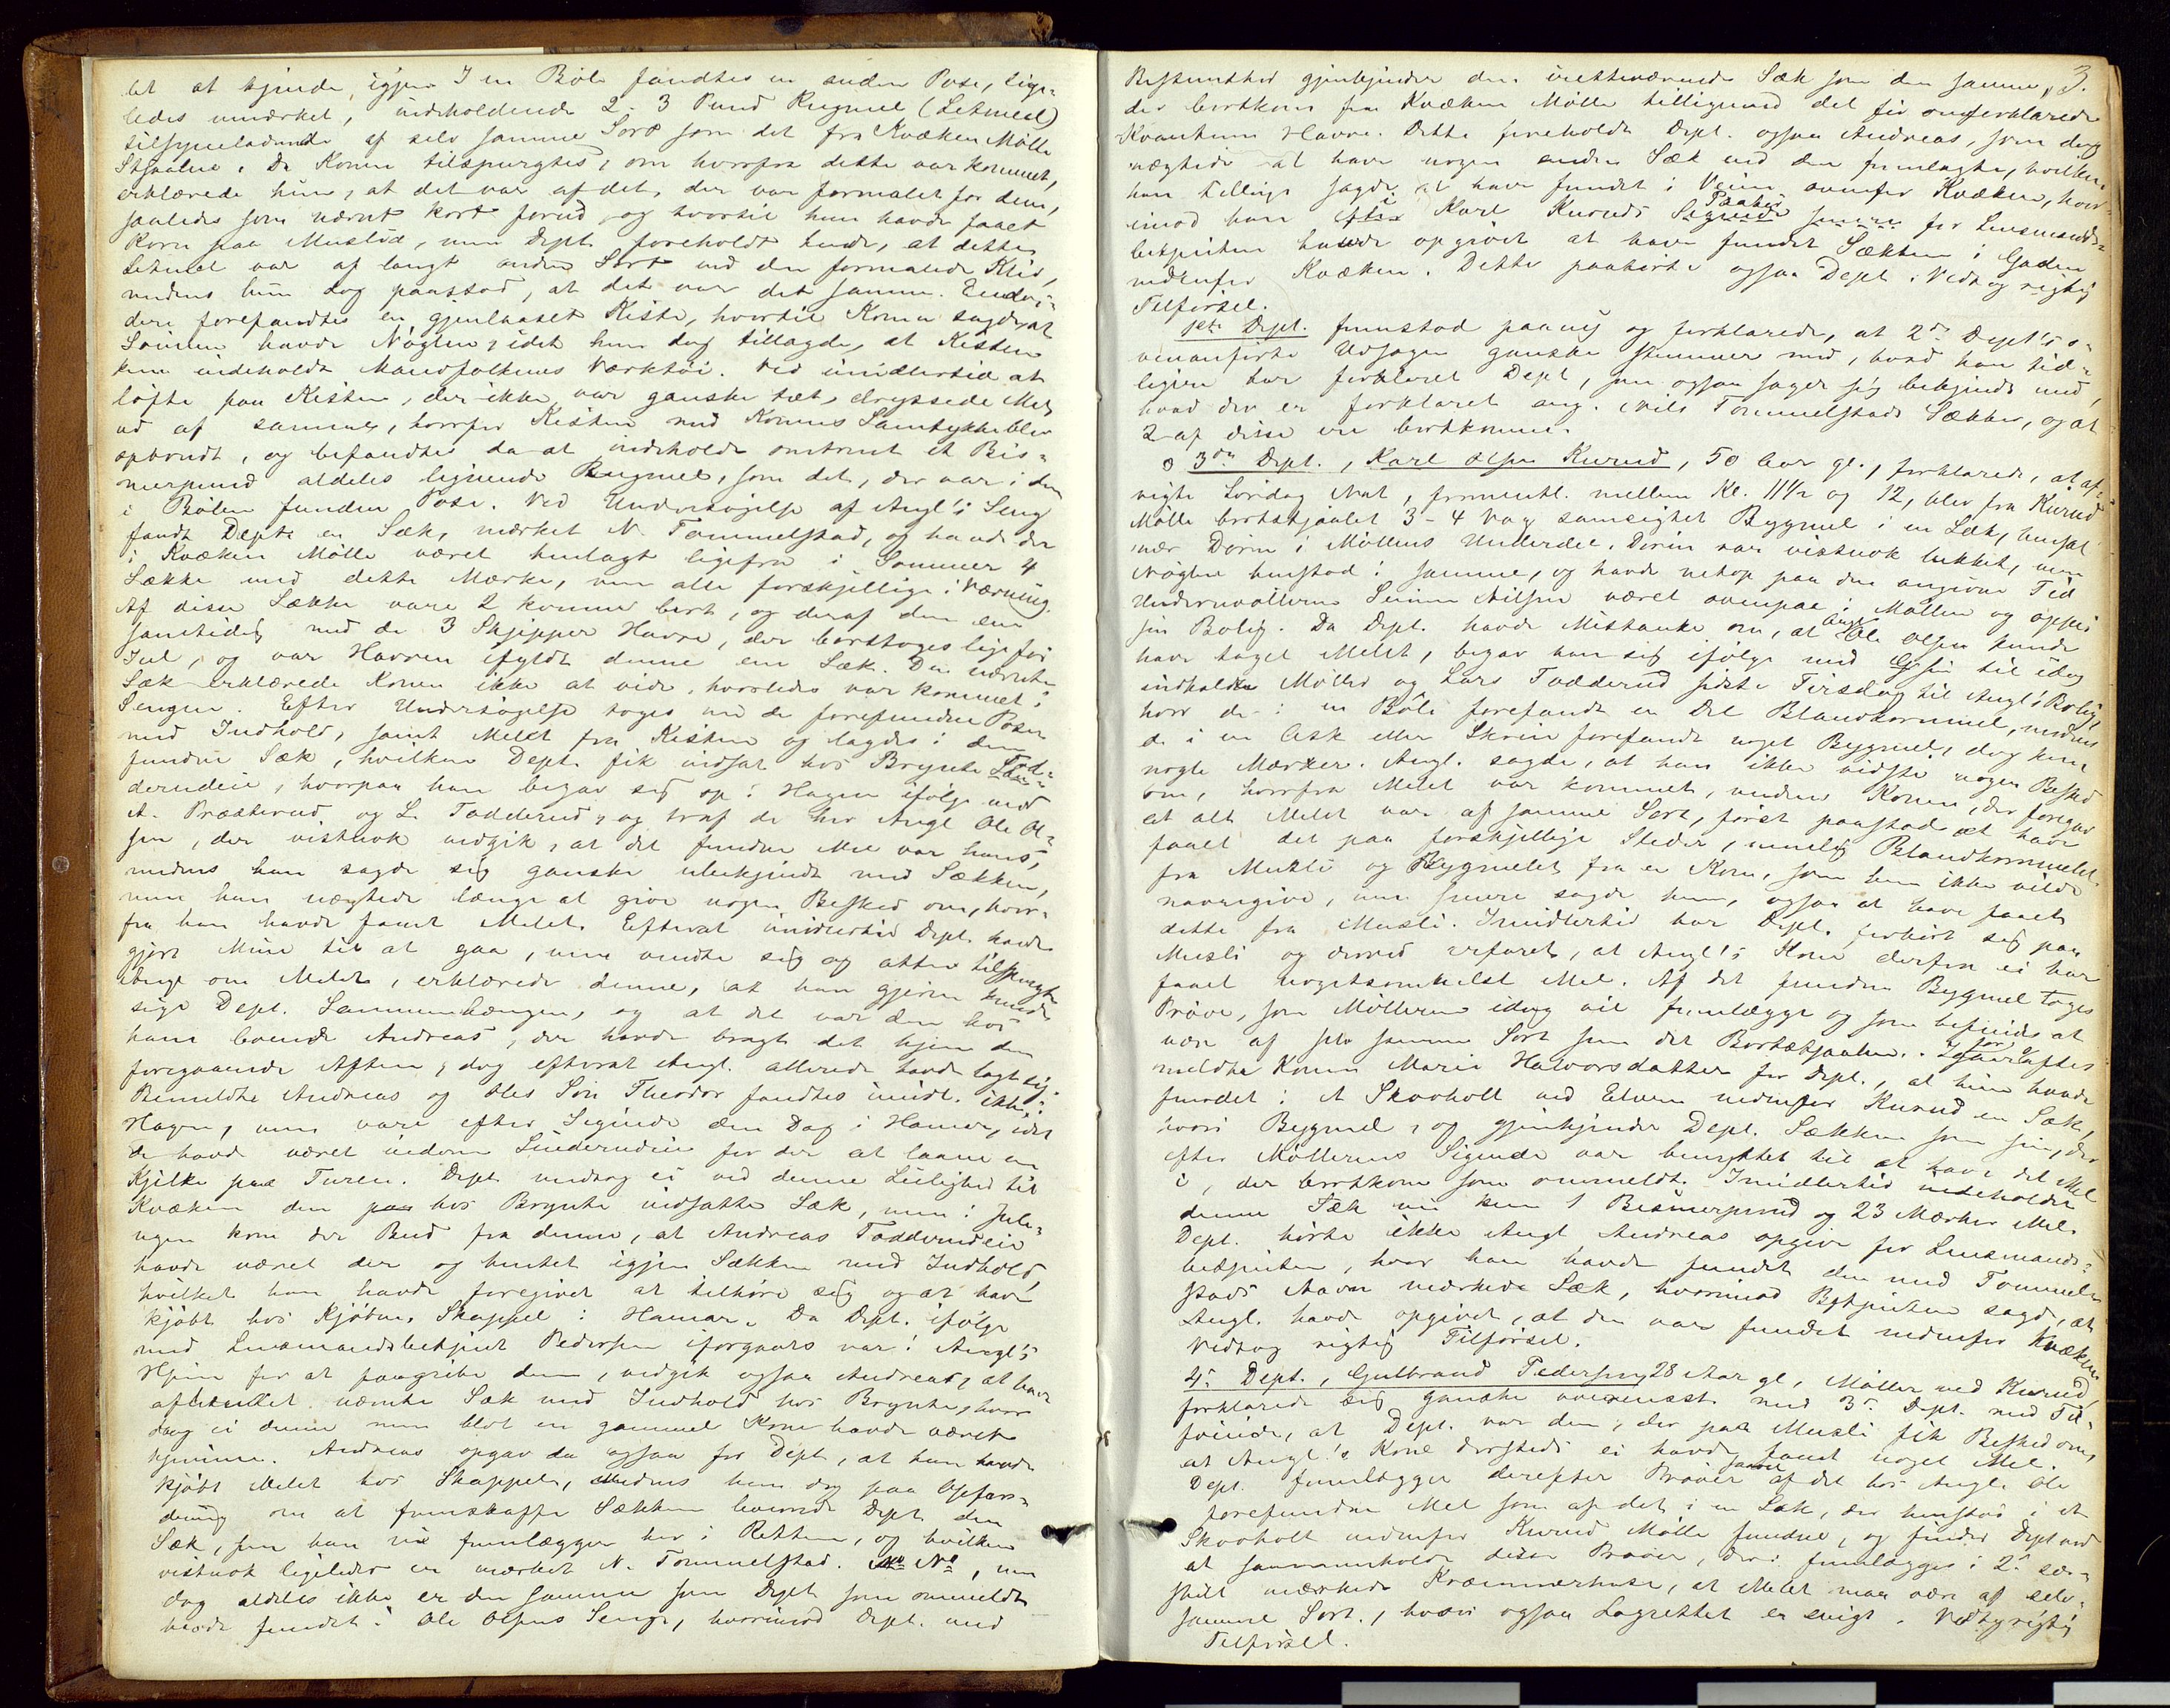 let at kjende igjen. I en Bøle fandtes en anden Pose, lige-
ledes umærket, indholdende 2-3 Pund Rugmel (Letmeel)
tilsyneladende af selv samme Sort som det fra Kvæken Mølle
Stjaalne. Da Konen tilspurgtes, om hvorfra dette var kommet,
erklærede hun, at det var af det, der var formalet for dem,
saaledes som nævnt kort forud, og hvortil hun havde faaet
Korn paa Muslie, men Dept. foreholdt hende, at dette
Letmel var af langt anden Sort end den formalede Klid,
medens hun dog paastod, at det var det samme. Endvi-
dere forefandtes en gjenlaaset Kiste, hvortil Konen sagde at
Sønnen havde Nøglen, idet hun dog tillagde, at Kisten
kun indeholdt Mandfolkenes Værktøi. Ved imidlertid at
løfte paa Kisten, der ikke var ganske tæt, dryssede Mel
ud af samme, hvorfor Kisten med Konens Samtykke blev
opbrudt, og befandtes da at indeholde omtrent et Bis-
merpund aldeles lignende Rugmel, som det, der var i den
i Bølen fundne Pose. Ved Undersøgelse af Angl's Seng
fandt Depte en Sæk, mærket N. Tommelstad, og havde der
i Kvæken Mølle været henlagt ligefra i Sommer 4
Sække med dette Mærke, men alle forskjellige i Værning.
Af disse Sække vare 2 komne bort, og deraf den ene
samtidig med de 3 Skjepper Havre, der borttoges lige før
Jul, og var Havren ifyldt denne ene Sæk. Den nævnte
Sæk erklærede Konen ikke at vide, hvorledes var kommet i
Sengen. Efter Undersøgelse toges med de forefundne Poser
med Indhold, samt Melet fra Kisten og lagdes i den
fundne Sæk, hvilken Dept. fik indsat hos Brynte Tod-
derudeie, hvorpaa han begav sig op i Hagen ifølge med
A. Præsterud og L. Todderud, og traf de her Angl Ole Ol-
sen, der vistnok vedgik, at det fundne Mel var hans,
medens han sagde sig ganske ubekjendt med Sækken,
men han nægtede længe at give nogen Besked om, hvor-
fra han havde faaet Melet. Efterat imidlertid Dept. havde
gjort Mine til at gaa, men vendte sig og atter tilspurgte
Angl om Melet, erklærede denne, at han gjerne kunde
sige Dept. Sammenhængen, og at det var den hos
ham boende Andreas, der havde bragt det hjem den
foregaaende Aften, dog efterat Angl. allerede havde lagt sig.
Bemeldte Andreas og Oles Søn Theodor fandtes imidl. ikke i
Hagen, men vare efter Sigende den Dag i Hamar, idet
de havde været indom Linderudeie for der at laane en
Kjelke paa Turen. Dept. medtog ei ved denne Leilighed til
Kvæken den paa hos Brynte indsatte Sæk, men i Jule-
ugen kom der Bud fra denne, at Andreas Todderudeie
havde været der og hentet igjen Sækken med Indhold,
hvilket han havde foregivet at tilhøre sig og at have
kjøbt hos Kjøbm. Skappel i Hamar. Da Dept. ifølge
med Lensmandsbetjent Pedersen iforgaars var i Angl's
Hjem for at paagribe dem, vedgik ogsaa Andreas, at have
afhentet nævnte Sæk med Indhold hos Brynte, hvor
dog ei denne men blot en gammel Kone havde været
hjemme. Andreas opgav da ogsaa for Dept, at han havde
kjøbt Melet hos Skappel, medens han dog paa Opfor-
dring om at fremskaffe Sækken leverede Dept. den
Sæk, som han nu fremlægger her i Retten, og hvilken
vistnok ligeledes er mærket N. Tommelstad. No, men
dog aldeles ikke er den samme som Dept. som ommeldt
havde fundet i Ole Olsens Seng, hvorimod Dept. med
3.
Bestemthed gjenkjender den irettevværende Sæk som den samme,
der bortkom fra Kvæken Mølle tilligemed det før omforklarede
Kvantum Havre. Dette foreholdt Dept. ogsaa Andreas, som dog
nægtede at have nogen anden Sæk end den fremlagte, hvilken
han tillige sagde at have fundet i Veien ovenfor Kvæken, hvor-
imod han efter Karl Kuruds Paahør for Lensmands-
betjenten havde opgivet at have fundet Sækken i Gaden
nedenfor Kvæken. Dette paahørte ogsaa Dept. Vedtog rigtig
Tilførsel.
1ste Dept. fremstod paany og forklarede, at 2de Dept's o-
venanførte Udsagn ganske stemmer med, hvad han tid-
ligere har forklaret Dept, som ogsaa siger sig bekjendt med,
hvad der er forklaret ang. Nils Tommelstads Sække, og at
2 af disse ere bortkomne.
3die Dept., Karl Olsen Kurud, 50 Aar gl., forklarede, at af-
vigte Løverdag Nat, formentl. mellem Kl. 11½ og 12, blev fra Kurud
Mølle bortstjaalet 3-4 Vog samsigtet Bygmel i en Sæk, henstaaet
nær Døren i Møllens Underdel. Døren var vistnok lukket, men
Nøglen henstod i samme, og havde netop paa den angivne Tid
Undermølleren Simen Nilsen været ovenpaa i Møllen og oppe i
sin Bolig. Da Dept. havde Mistanke om, at Angl. Ole Olsen kunde
have taget Melet, begav han sig ifølge med Gjesten til idag
indkaldte Møller og Lars Todderud sidste Tirsdag til Angl's Bolig,
hvor de i en Bøle forefandt en Del Blandkornmel, medens
de i en Ask eller Skrin forefandt noget Bygmel, dog kun
nogle Mærker. Angl. sagde, at han ikke vidste nogen Besked
om, hvorfra Melet var kommet, medens Konen, der foregav
at alt Melet var af samme Sort, først paastod at have
faaet det paa forskjellige Steder, nemlig Blandkornmelet
fra Musli og Bygmelet fra en Kone, som hun ikke vilde
navngive, men senere sagde hun, ogsaa at have faaet
dette fra Musli. Imidlertid har Dept. forhørt sig paa
Musli og derved erfaret, at Angl's Kone derfra ei har
faaet nogetsomhelst Mel. Af det fundne Bygmel toges
Prøve, som Mølleren idag vil fremlægge og som befindes at
være af selv samme Sort som det Bortstjaalne. Igaar aftes
meldte Konen Marie Halvorsdatter for Dept., at hun havde
fundet i et Skovholt ved Elven nedenfor Kurud en Sæk,
hvori Bygmel, og gjenkjender Dept. Sækken som sin, der
efter Møllerens Sigende var benyttet til at have det Mel
i, der bortkom som ommeldt. Imidlertid indeholder
denne Sæk nu kun 1 Bismerpund og 23 Mærker Mel.
Dept. hørte ikke Angl Andreas opgive for Lensmands-
betjenten, hvor han havde fundet den med Tommel-
stads Navn mærkede Sæk, hvorimod Betjenten sagde, at
Angl. havde opgivet, at den var fundet nedenfor Kvæken.
Vedtog rigtig Tilførsel.
4de Dept., Gulbrand Pedersen, 28 Aar gl, Møller ved Kurud,
forklarede sig ganske overensst. med 3die Dept. med Til-
føiende, at Dept. var den, der paa Musli fik Besked om,
at Angl.'s Kone dersteds ei havde faaet noget Mel.
Dept. fremlægger derefter Prøver saavel af det hos Angl. Ole
forefundne Mel som af det i en Sæk, der henstod i et
Skovholt nedenfor Kurud Mølle fundne, og finder Dept. ved
at sammenholde disse Prøver, der fremlægges i 2de sær-
skilt mærkede Kræmmerhuse, at Melet maa være af selv-
samme Sort, hvori ogsaa Lagrettet er enigt. Vedtog rigtig
Tilførsel.